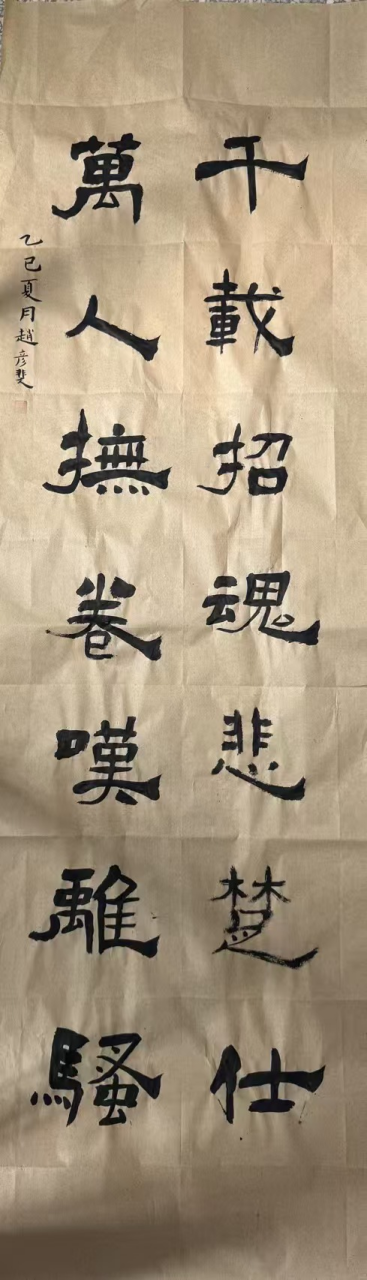 千載招魂悲楚仕
萬人撫卷嘆離騷
乙巳夏月趙彥斐